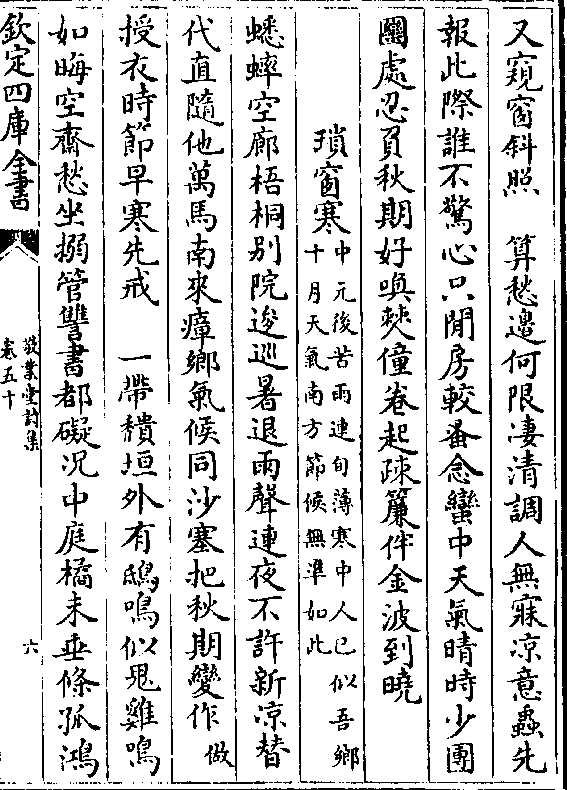 又窺窗斜照　算愁邊何限凄清調人無寐凉意蟲先
報此際誰不驚心只閒房較蚤念蠻中天氣晴時少團
圞處忍負秋期好喚㷀僮卷起疎簾伴金波到曉
瑣窗寒
中元後苦雨連旬薄寒中人已似吾鄉
十月天氣南方節候無準如此
蟋蟀空廊梧桐别院逡巡暑退雨聲連夜不許新凉替
代直隨他萬馬南來瘴鄉氣候同沙塞把秋期變作做
授衣時節早寒先戒　一帶穨垣外有鴟鳴似鬼雞鳴
如晦空齋愁坐搦管讐書都礙况中庭橘未垂條孤鴻
欽定四庫全書
敬業堂詩集
卷五十
六